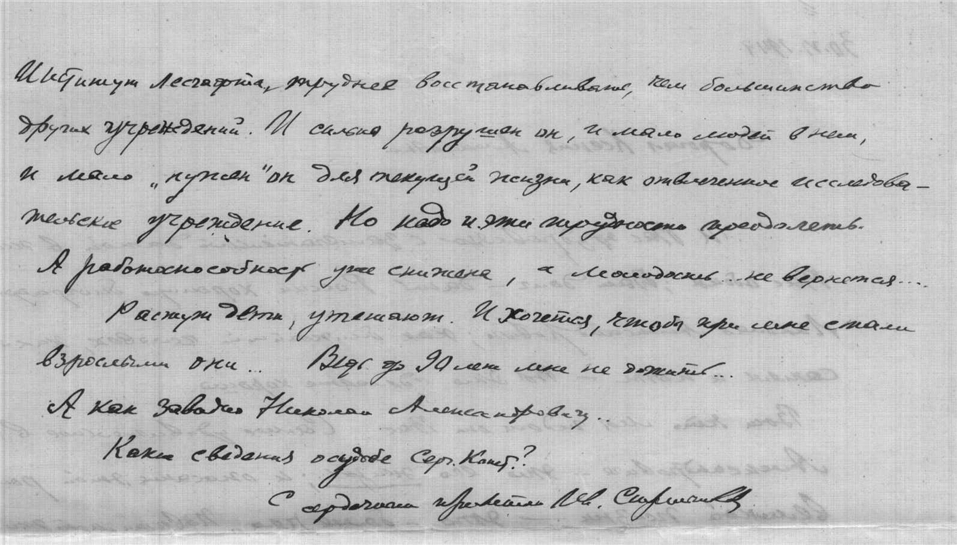 Институт Лесгафта, труднее восстанавливать, чем большинство
других учреждений. И сильно разрушен он, и мало людей в нем,
и мало „нужен“ он для текущей жизни, как отвлеченное исследова-
тельское учреждение. Но надо и эти трудности преодолеть.
А работоспособность уже снижена, а молодость... не вернется....
Растут дети, утешают. И хочется, чтобы при мне стали
взрослыми они... Ведь до 90 лет мне не дожить...
А как завидно Николаю Александровичу...
Какие сведения о судьбе Серг. Конст.?
С сердечным приветом